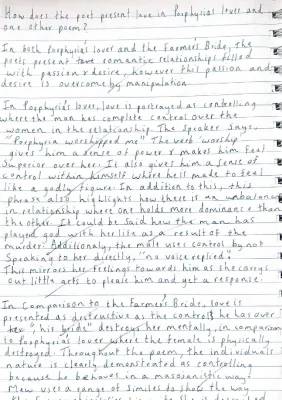 How does the poet present love in Porphyrias lover and
one other poem?
In both Porphyrias lover and the Farmer's Bride, the
poets present love romantic relationships filled
with passion & desire, however this passion and
desire is overcome by manipulation.
In Porphyrias lover, love is portrayed as controlling
where the man has complete control over the
women in the relationship. The speaker says,
"Porphyria worshipped me" The verb worship
gives him a sense of power & makes him feel
superior over her. It also gives him a sense of
control within himself where he'll made to feel
like a godly figure. In addition to this, this
phrase also highlights how there is an unbalance
in relationship where one holds more dominance than
the other. It could be said how the man has
played god with her life as a result of the
murder. Additionaly, the male uses control by not
speaking to her directly, "no voice replied."
This mirrors her feelings towards him as she carrys
out little acts to please him and yet a response.
In Comparison to the Farmer's Bride, love is
presented as destructive as the control he has over
her "his bride" destroys her mentally, in comparison
to Porphyrias lover where the female is physically
destroyed. Throughout the poem, the individuals
nature is clearly demonstrated as controlling
because he behaves in a masoganistic way.
Mew uses a range of similes to show the way